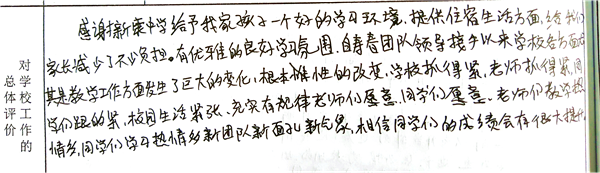 对学校工作的
总体评价
感谢新康中学给予我家孩子一个好的学习环境，提供住宿生活方面，给我们
家长减少了不少负担。有优雅的良好学习氛围，自青团队领导接手以来学校各方面
其是教学工作方面发生了巨大的变化，根本性的改变，学校抓得紧，老师抓得紧，同
学们跟的紧，校园生活紧张、充实有规律老师们愿意，同学们愿意，老师们教学热
情多，同学们学习热情多新团队新面孔新气象，相信同学们的成绩会有很大提升